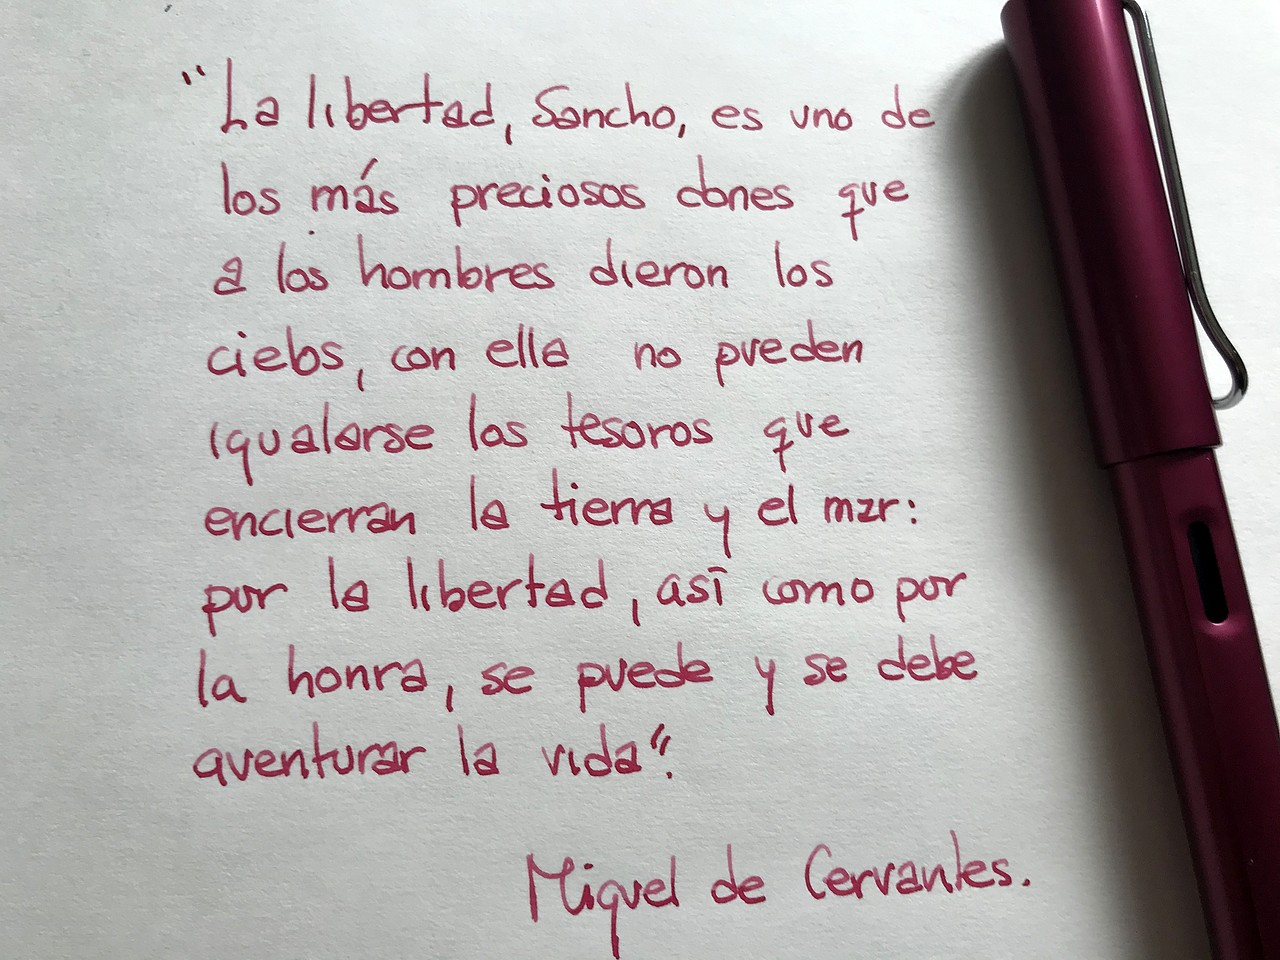 "La libertad, Sancho, es uno de
los más preciosos dones que
a los hombres dieron los
cielos, con ella no pueden
igualarse los tesoros que
encierran la tierra y el mar:
por la libertad, así como por
la honra, se puede y se debe
aventurar la vida".
Miguel de Cervantes.